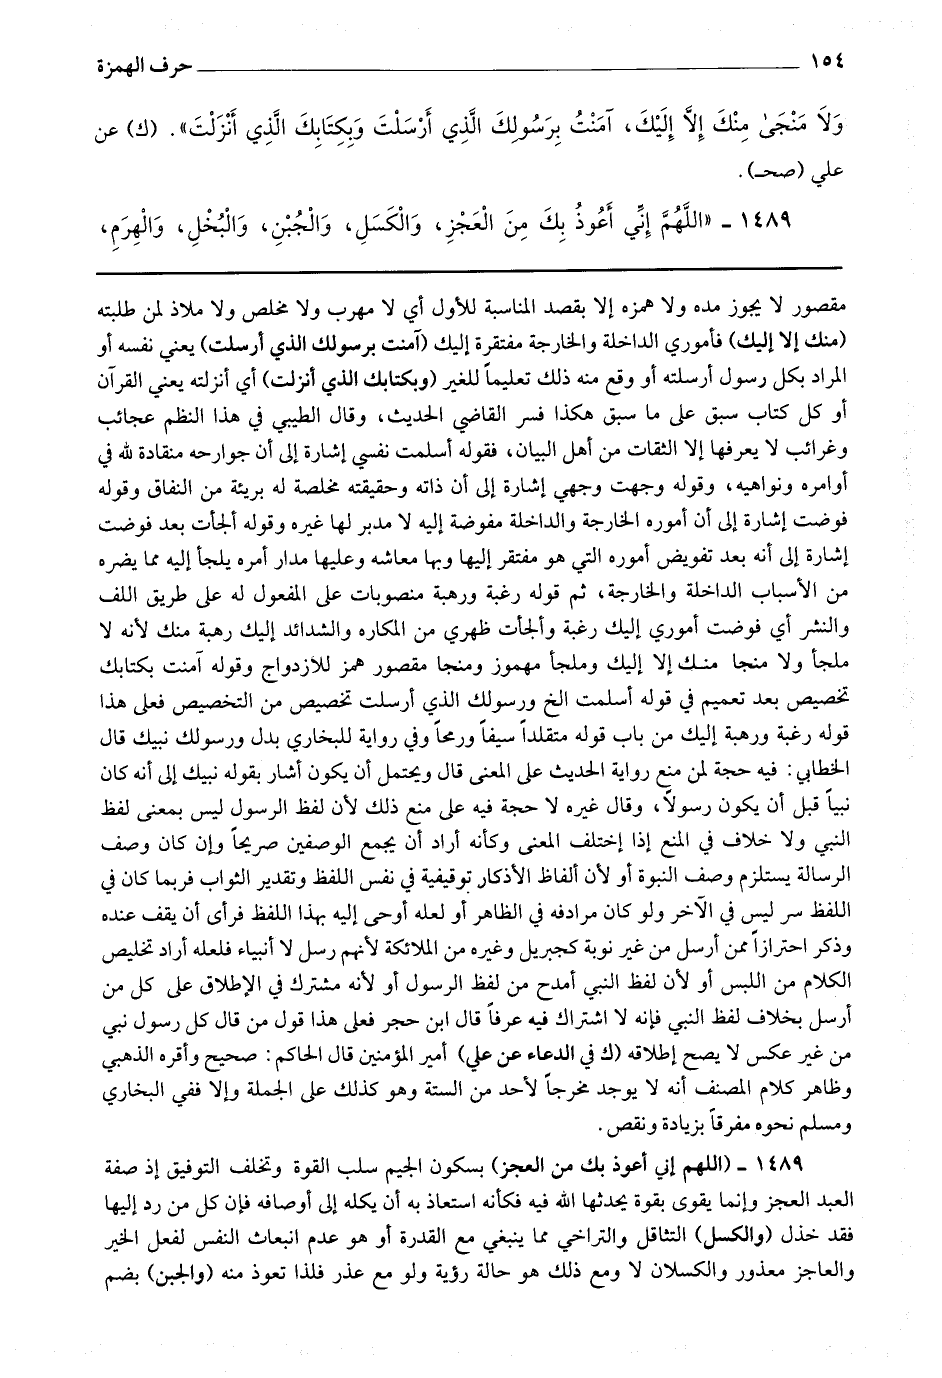 ١٥٤ حرف الهمزة
وَلَا مَنْجَىٰ مِنْكَ إِلاَّ إِلَيْكَ، آمَنْتُ بِرَسُولِكَ الَّذِي أَرْسَلْتَ وَبِكِتَابِكَ الَّذِي أَنْزَلْتَ». (ك) عن
علي (صحـ).
١٤٨٩ ـ «اللَّهُمَّ إِنِّي أَعُوذُ بِكَ مِنَ الْعَجْزِ، وَالْكَسَلِ، وَالْجُبْنِ، وَالْبُخْلِ، وَالْهِرَمِ،
مقصور لا يجوز مده ولا همزه إلا بقصد المناسبة للأول أي لا مهرب ولا مخلص ولا ملاذ لمن طلبته
(منك إلا إليك) فأموري الداخلة والخارجة مفتقرة إليك (آمنت برسولك الذي أرسلت) يعني نفسه أو
المراد بكل رسول أرسلته أو وقع منه ذلك تعليماً للغير (وبكتابك الذي أنزلت) أي أنزلته يعني القرآن
أو كل كتاب سبق على ما سبق هكذا فسر القاضي الحديث، وقال الطيبي في هذا النظم عجائب
وغرائب لا يعرفها إلا الثقات من أهل البيان، فقوله أسلمت نفسي إشارة إلى أن جوارحه منقادة لله في
أوامره ونواهيه، وقوله وجهت وجهي إشارة إلى أن ذاته وحقيقته مخلصة له بريئة من النفاق وقوله
فوضت إشارة إلى أن أموره الخارجة والداخلة مفوضة إليه لا مدبر لها غيره وقوله ألجأت بعد فوضت
إشارة إلى أنه بعد تفويض أموره التي هو مفتقر إليها وبها معاشه وعليها مدار أمره يلجأ إليه مما يضره
من الأسباب الداخلة والخارجة، ثم قوله رغبة ورهبة منصوبات على المفعول له على طريق اللف
والنشر أي فوضت أموري إليك رغبة وألجأت ظهري من المكاره والشدائد إليك رهبة منك لأنه لا
ملجأ ولا منجا منك إلا إليك وملجأ مهموز ومنجا مقصور همز للازدواج وقوله آمنت بكتابك
تخصيص بعد تعميم في قوله أسلمت الخ ورسولك الذي أرسلت تخصيص من التخصيص فعلى هذا
قوله رغبة ورهبة إليك من باب قوله متقلداً سيفاً ورمحاً وفي رواية للبخاري بدل ورسولك نبيك قال
الخطابي: فيه حجة لمن منع رواية الحديث على المعنى قال ويحتمل أن يكون أشار بقوله نبيك إلى أنه كان
نبياً قبل أن يكون رسولاً، وقال غيره لا حجة فيه على منع ذلك لأن لفظ الرسول ليس بمعنى لفظ
النبي ولا خلاف في المنع إذا إختلف المعنى وكأنه أراد أن يجمع الوصفين صريحاً وإن كان وصف
الرسالة يستلزم وصف النبوة أو لأن ألفاظ الأذكار توقيفية في نفس اللفظ وتقدير الثواب فربما كان في
اللفظ سر ليس في الآخر ولو كان مرادفه في الظاهر أو لعله أوحى إليه بهذا اللفظ فرأى أن يقف عنده
وذكر احترازاً ممن أرسل من غير نوبة كجبريل وغيره من الملائكة لأنهم رسل لا أنبياء فلعله أراد تخليص
الكلام من اللبس أو لأن لفظ النبي أمدح من لفظ الرسول أو لأنه مشترك في الإطلاق على كل من
أرسل بخلاف لفظ النبي فإنه لا اشتراك فيه عرفاً قال ابن حجر فعلى هذا قول من قال كل رسول نبي
من غير عكس لا يصح إطلاقه (ك في الدعاء عن علي) أمير المؤمنين قال الحاكم: صحيح وأقره الذهبي
وظاهر كلام المصنف أنه لا يوجد مخرجاً لأحد من الستة وهو كذلك على الجملة وإلا ففي البخاري
ومسلم نحوه مفرقاً بزيادة ونقص.
١٤٨٩ ـ (اللهم إني أعوذ بك من العجز) بسكون الجيم سلب القوة وتخلف التوفيق إذ صفة
العبد العجز وإنما يقوى بقوة يحدثها الله فيه فكأنه استعاذ به أن يكله إلى أوصافه فإن كل من رد إليها
فقد خذل (والكسل) التثاقل والتراخي مما ينبغي مع القدرة أو هو عدم انبعاث النفس لفعل الخير
والعاجز معذور والكسلان لا ومع ذلك هو حالة رؤية ولو مع عذر فلذا تعوذ منه (والجبن) بضم